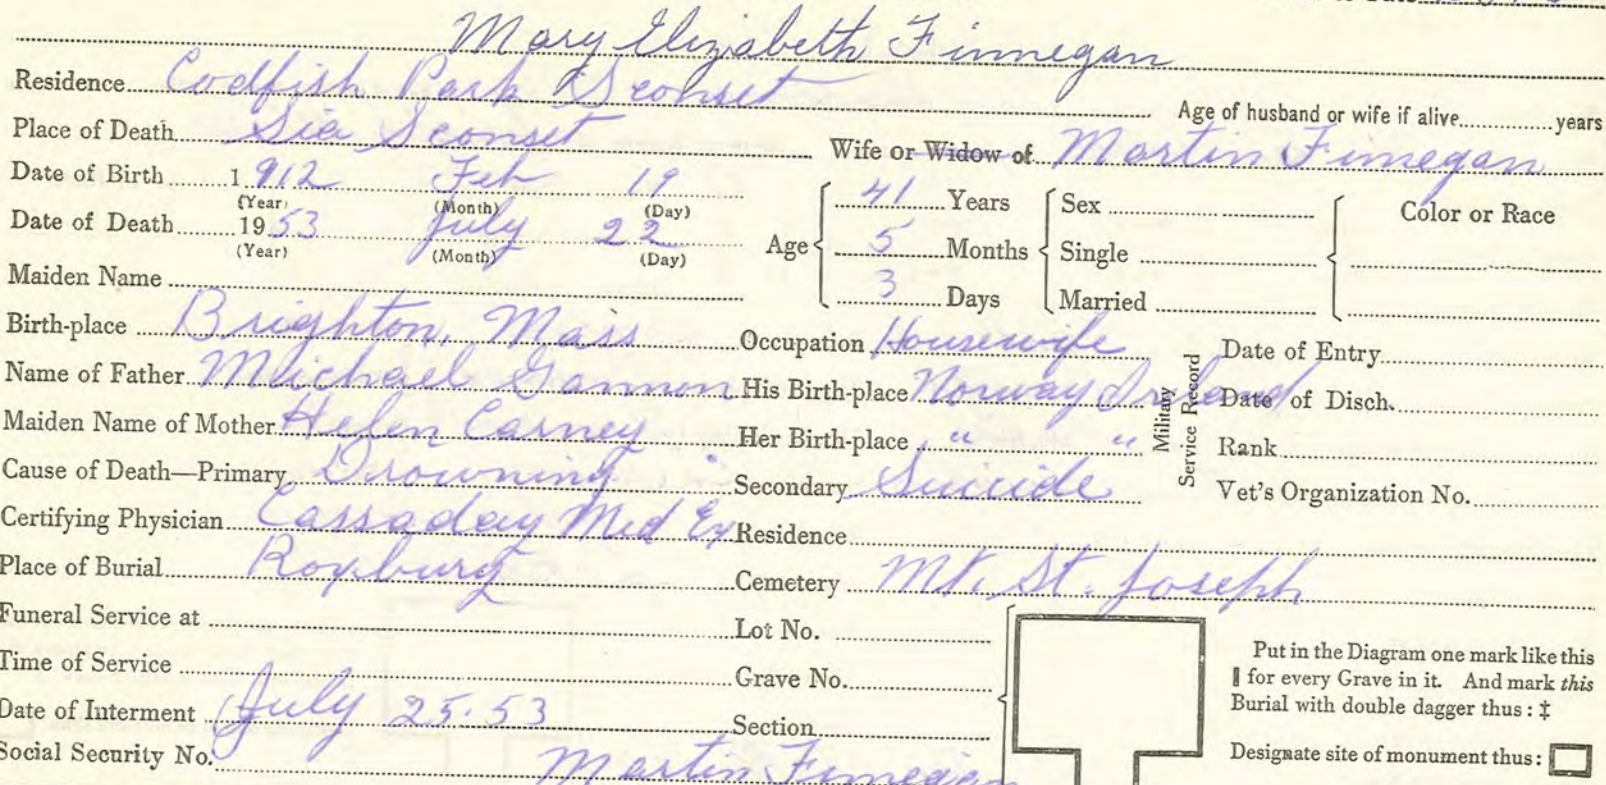 Mary Elizabeth Finnegan
Residence Codfish Park Sconset Age of husband or wife if alive years
Place of Death Sia Sconset Wife or Widow of Martin Finnegan
Date of Birth 1912 Feb 19
(Year) (Month) (Day)
Date of Death 1953 July 22
(Year) (Month) (Day)
Age 41 Years
5 Months
3 Days
Sex
Single
Married
Color or Race
Maiden Name
Birth-place Brighton, Mass Occupation Housewife Date of Entry
Name of Father Michael Gannon His Birth-place Norway Ireland Date of Disch.
Military Service Record
Maiden Name of Mother Helen Carney Her Birth-place " " Rank
Cause of Death—Primary Drowning Secondary Suicide Vet's Organization No.
Certifying Physician Cassaday Med Ex Residence
Place of Burial Roxburg Cemetery Mt. St. Joseph
Funeral Service at Lot No.
Time of Service Grave No.
Date of Interment July 25-53 Section
Social Security No.
Martin Finnegan
Put in the Diagram one mark like this
for every Grave in it. And mark this
Burial with double dagger thus: ‡
Designate site of monument thus: